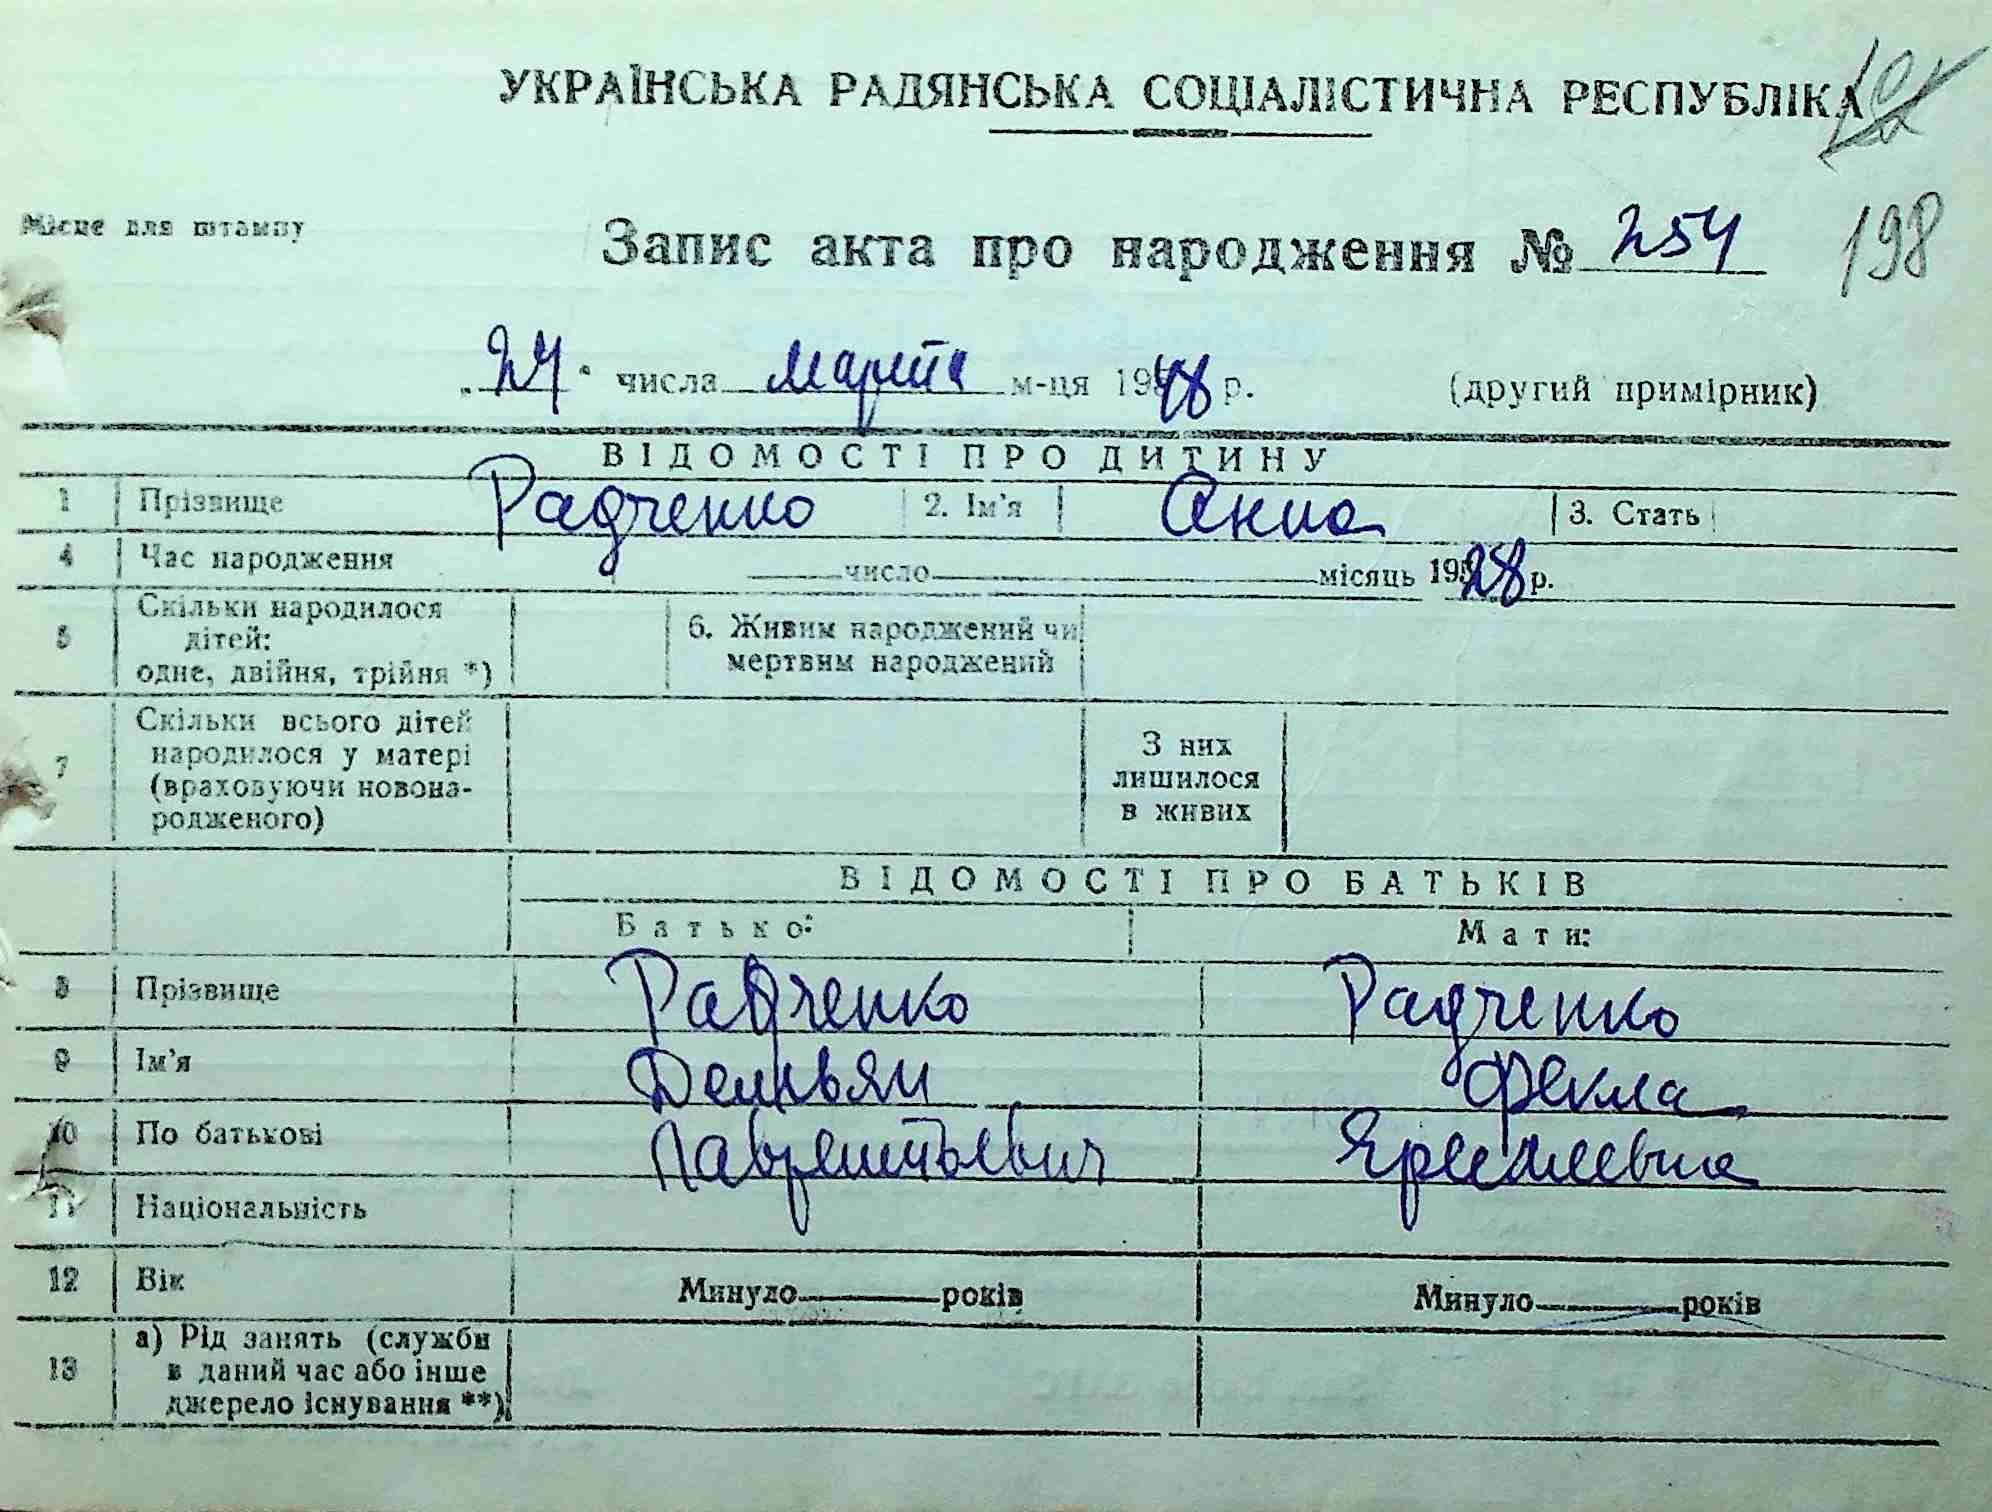 УКРАЇНСЬКА РАДЯНСЬКА СОЦІАЛІСТИЧНА РЕСПУБЛІКА
Місце для штампу
Запис акта про народження № 254
198
„24“ числа марта м-ця 1948 р. (другий примірник)
ВІДОМОСТІ ПРО ДИТИНУ
1 Прізвище Радченко 2. Ім'я Анна 3. Стать
4 Час народження число місяць 1928 р.
5 Скільки народилося дітей: одне, двійня, трійня *) 6. Живим народжений чи мертвим народжений
7 Скільки всього дітей народилося у матері (враховуючи новонародженого) З них лишилося в живих
ВІДОМОСТІ ПРО БАТЬКІВ
Батько: Мати:
8 Прізвище Радченко Радченко
9 Ім'я Демьян Фекла
10 По батькові Лаврентьевич
11 Національність
12 Вік Минуло років Минуло років
13 а) Рід занять (служби в даний час або інше джерело існування **)